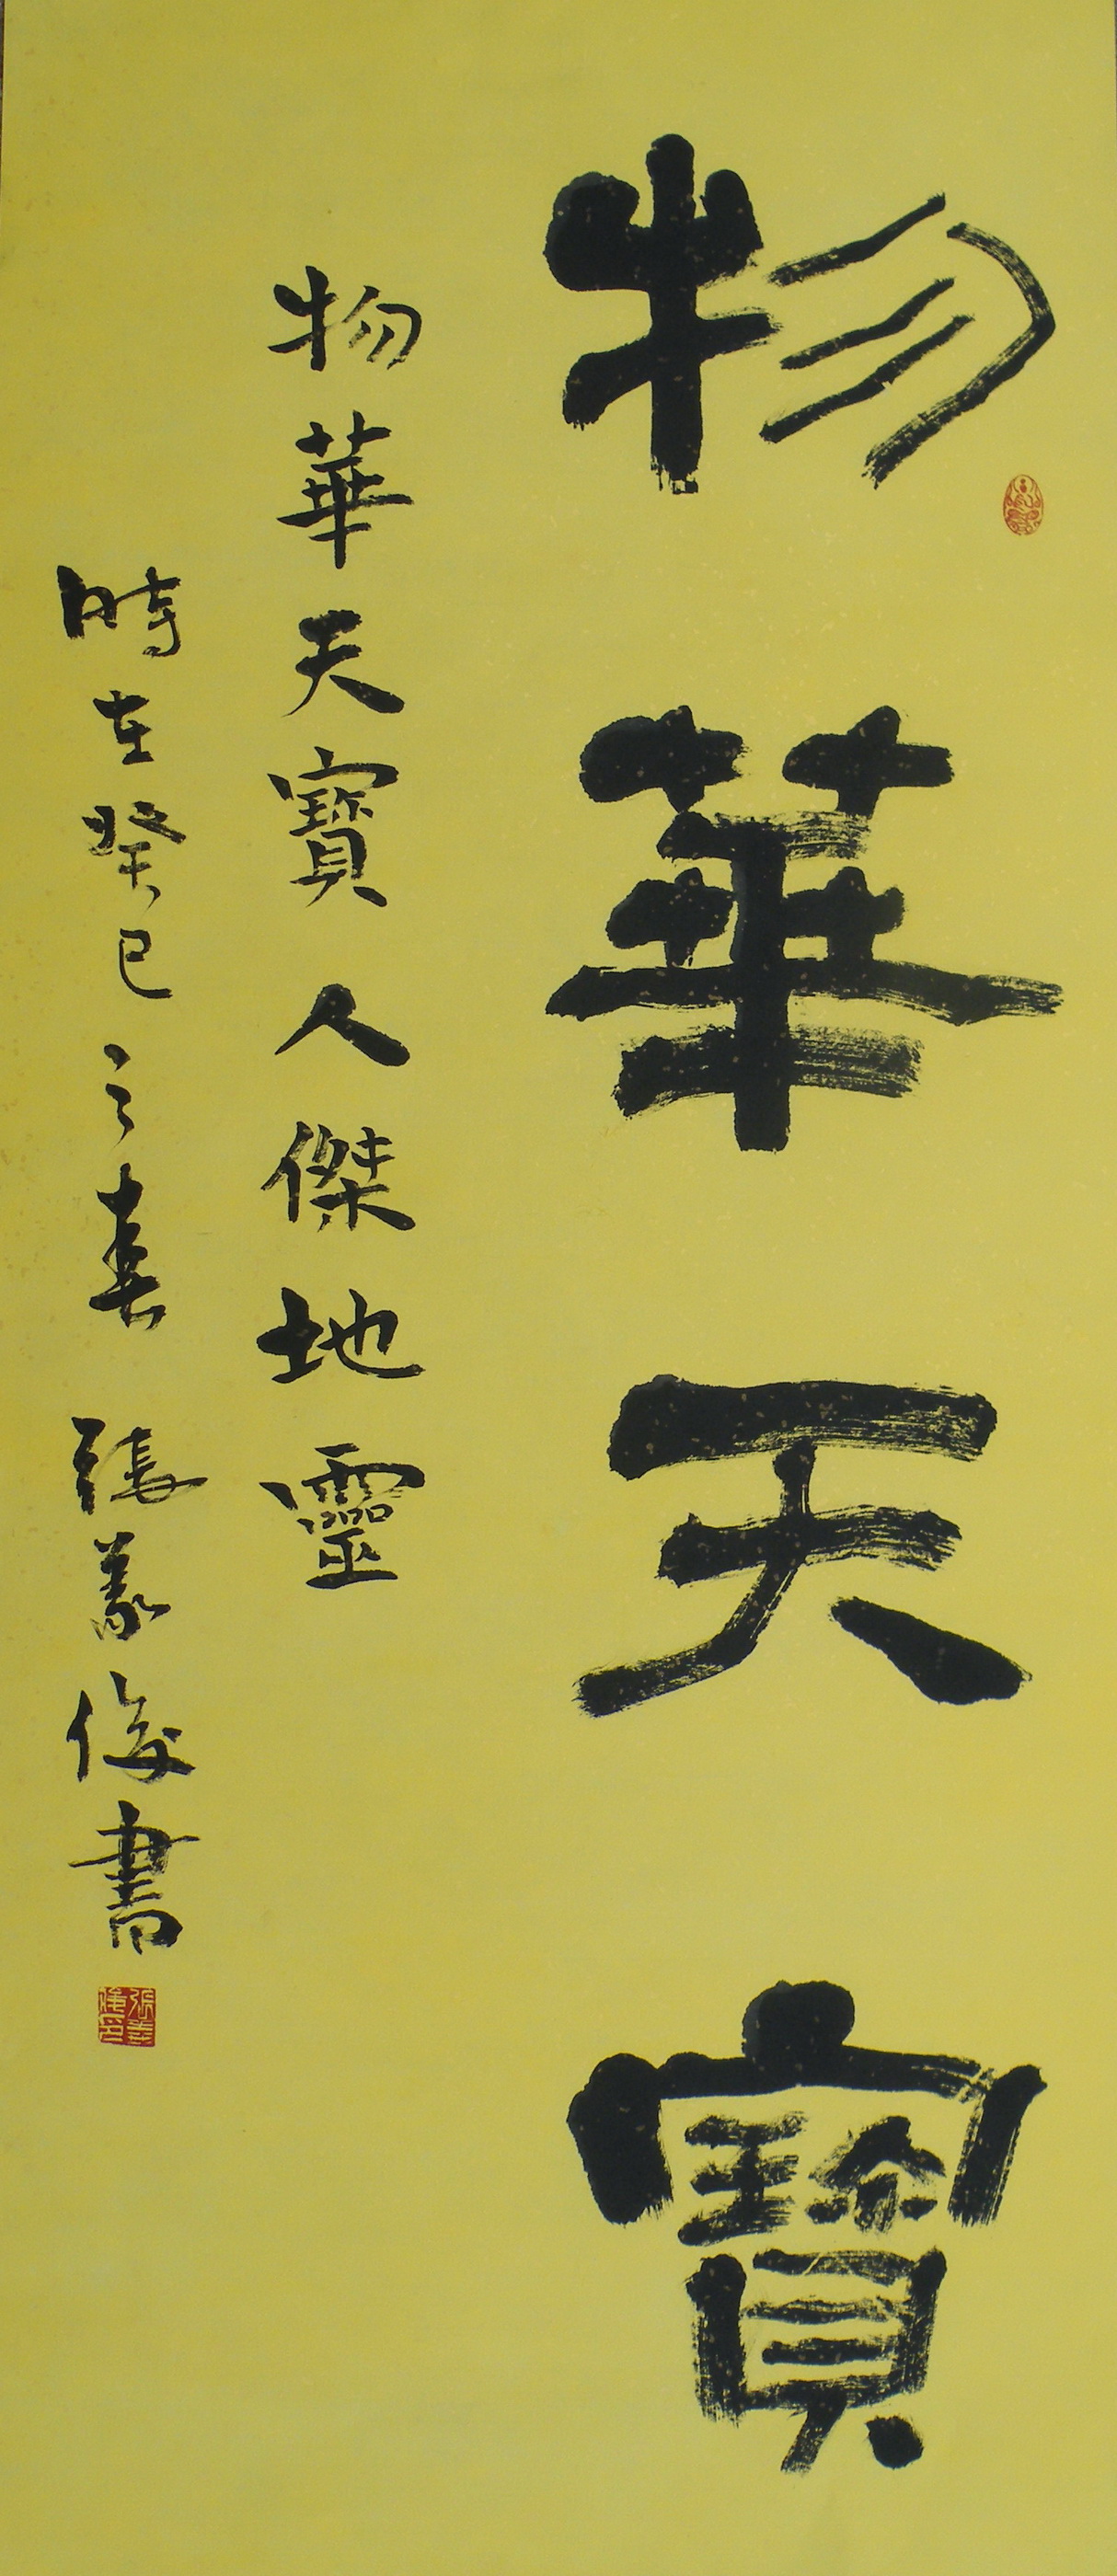 物華天寶
物華天寶人傑地靈
時在癸巳之春張義俊書